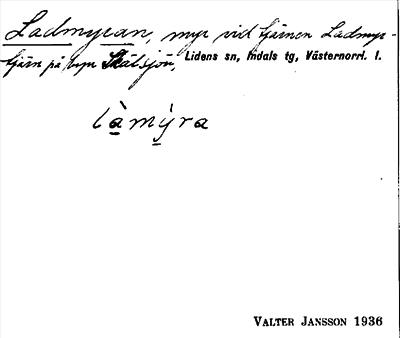 Ladmyran, myr vid tjärnen Ladmyr-
tjärn på byn Skälsjön, Lidens sn, Indals tg, Västernorrl. l.
l<u>à</u>m̱ýra
VALTER JANSSON 1936